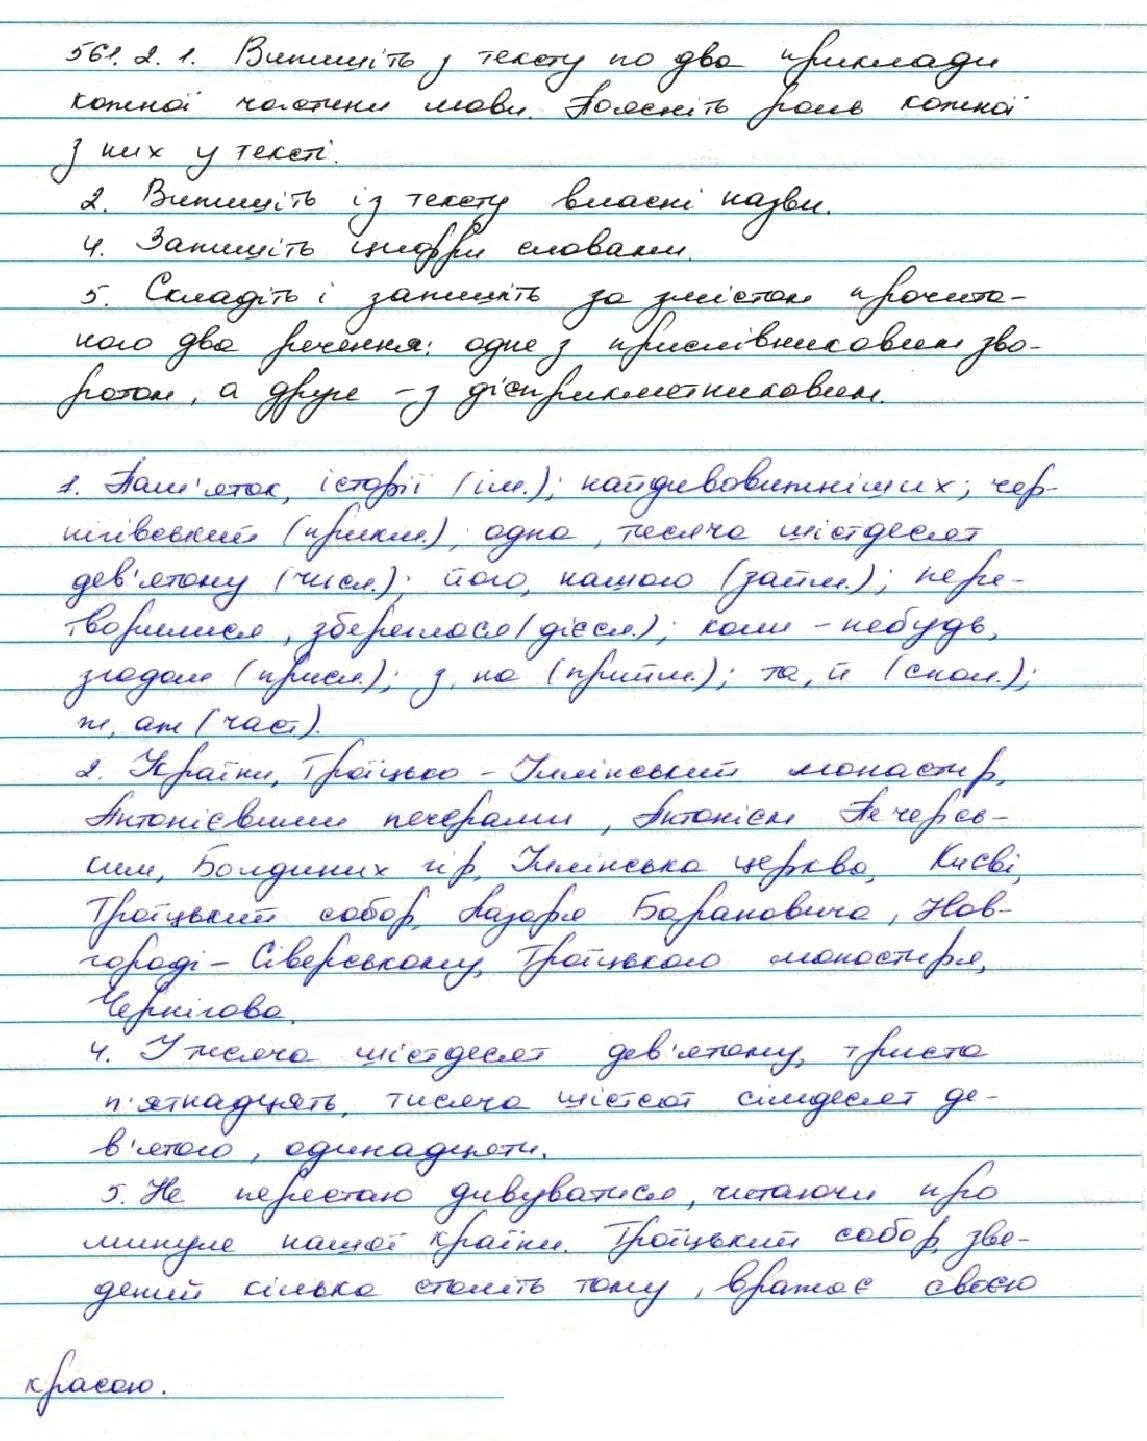 561. 2. 1. Випишіть з тексту по два приклади
кожної частини мови. Поясніть роль кожної
з них у тексті.
2. Випишіть із тексту власні назви.
4. Запишіть цифри словами.
5. Складіть і запишіть за змістом прочита-
ного два речення: одне з прислівниковим зво-
ротом, а друге – з дієприкметниковим.
1. Пам'яток, історії (ім.); найдивовижніших; чер-
нігівський (прикм.); одна, тисяча шістдесят
дев'ятому (числ.); його, нашого (займ.); пере-
творилися, збереглася (дієсл.); коли-небудь,
згодом (присл.); з, на (прийм.); та, й (спол.);
ж, аж (част).
2. України, Троїцько-Іллінський монастир,
Антонієвими печерами, Антонієм Печерсь-
ким, Болдиних гір, Іллінська церква, Києві,
Троїцький собор, Лазаря Барановича, Нов-
городі-Сіверському, Троїцького монастиря,
Чернігова.
4. У тисяча шістдесят дев'ятому, триста
п'ятнадцять, тисяча шістсот сімдесят де-
в'ятого, одинадцяти.
5. Не перестаю дивуватися, читаючи про
минуле нашої країни. Троїцький собор, зве-
дений кілька століть тому, вражає своєю
красою.